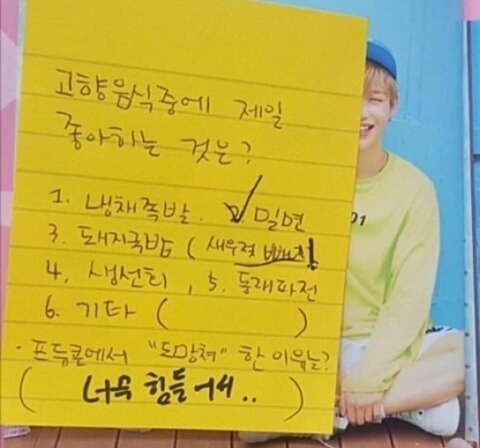 고향음식중에 제일
좋아하는 것은?
1. 냉채족발. 2. 밀면
3. 돼지국밥 (새우젓 빼고!)
4. 생선회, 5. 동래파전
6. 기타 ( )
· 프듀콘에서 "도망쳐" 한 이유는?
( 너무 힘들어서.. )
01